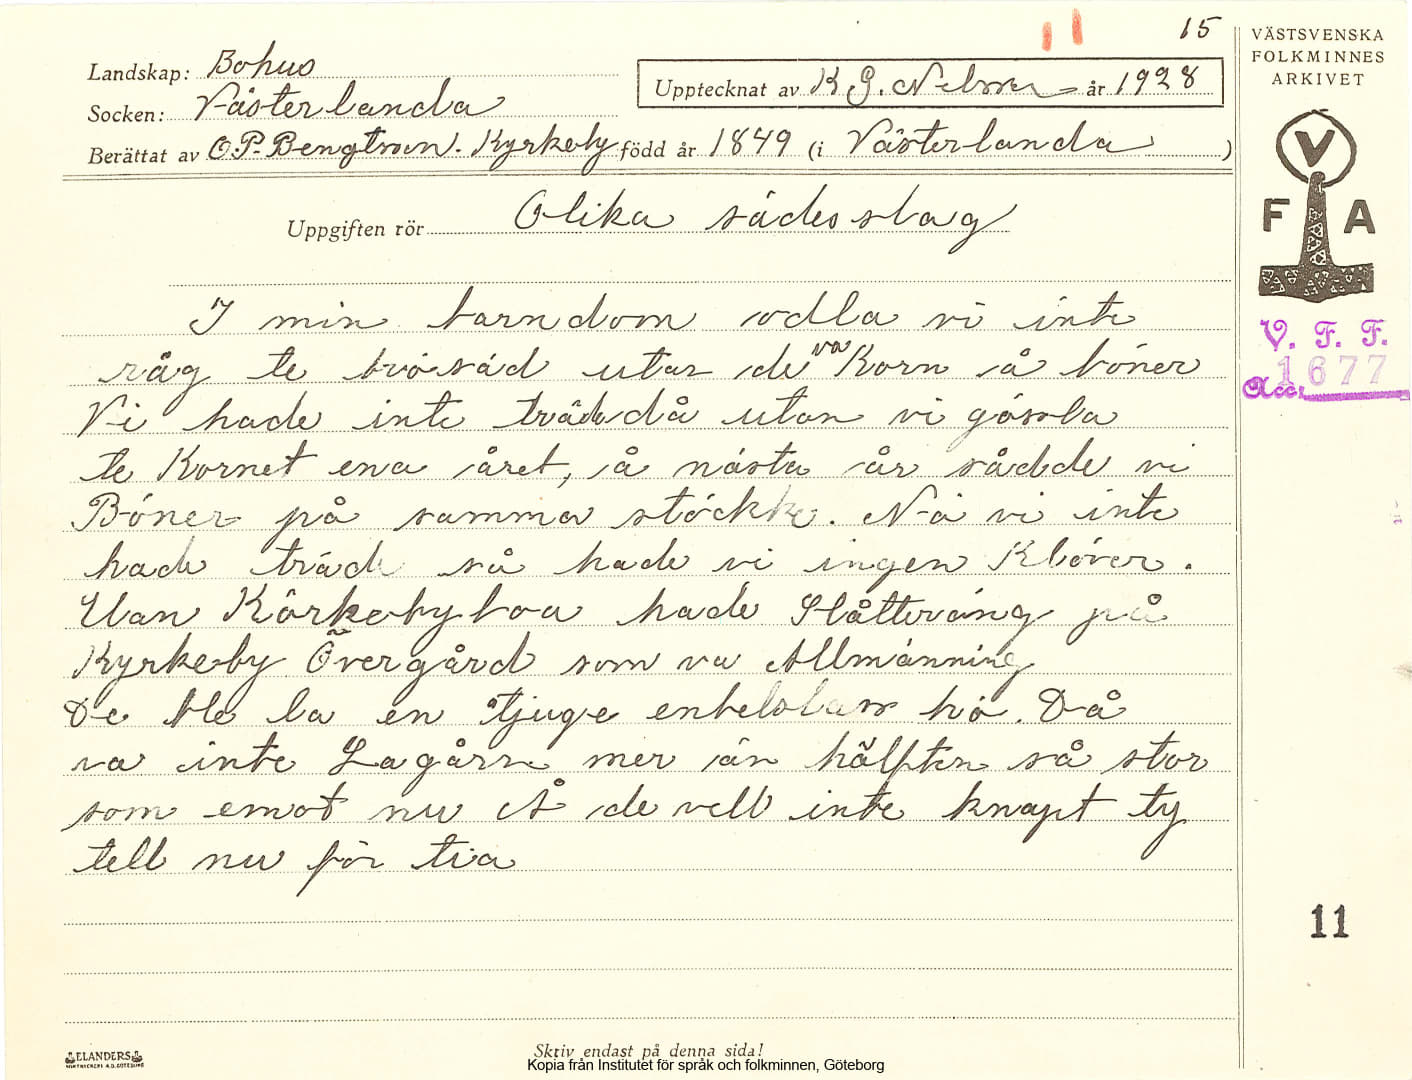 15
VÄSTSVENSKA
FOLKMINNES
ARKIVET
Landskap: Bohus
Upptecknat av K G. Nelsson år 1928
Socken: Västerlanda
Berättat av O.P. Bengtsson. Kyrkeby född år 1849 (i Västerlanda)
V
F A
Uppgiften rör Olika sädesslag
I min barndom odla vi inte
råg te brösäd utan de va Korn å böner
Vi hade inte träde då utan vi gösla
te Kornet ena året, å nästa år sådde vi
Böner på samma stöckke. Nä vi inte
hade träde så hade vi ingen Klöver.
Utan Körkebyboa hade Slåtteräng på
Kyrkeby Övergård som va Allmänning
De ble ba en tjuge enbelslass hö. Då
va inte Lagårn mer än hälften så stor
som emot nu Å de vell inte knapt ty
tell nu för tia
V. F. F.
Acc. 1677
11
ELANDERS
Skriv endast på denna sida!
Kopia från Institutet för språk och folkminnen, Göteborg